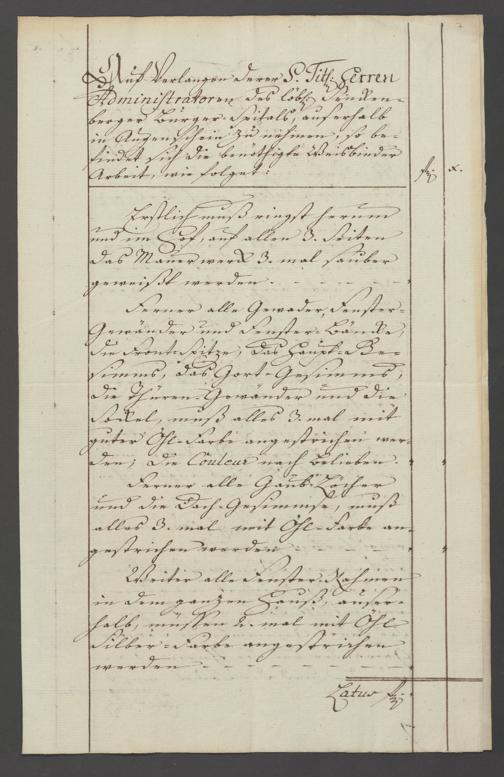 Auf Verlangen derer S. Titl. Herren
Administratoren des löbl. Sencken-
berger Burger-Spitals, auserhalb
in Augenschein zu nehmen, so be-
findet sich die benöthigte Weisbinder
Arbeit, wie folget:
fl. x.
Erstlich muß ringst herum
und im Hof, auf allen 3. Seiten
das Mauer werck 3. mal sauber
geweißt werden.
Ferner alle Gewader, Fenster-
Gewänder und Fenster-Bäncke,
die Front-Spitze, das Haupt-Ge-
simms, das Gort-Gesimms,
die Thüren-Gewänder und die
Sockel, muß alles 3. mal mit
guter Öhl-Farbe angestrichen wer-
den; die Couleur nach Belieben.
Ferner alle Gaub-Löcher
und die Dach-Gesimmse, muß
alles 3. mal mit Öhl-Farbe an-
gestrichen werden
Weiter alle Fenster-Rahmen
in dem ganzen Hauß, auser-
halb, müssen 2. mal mit Öhl
Silber-Farbe angestrichen
werden
Latus fl.